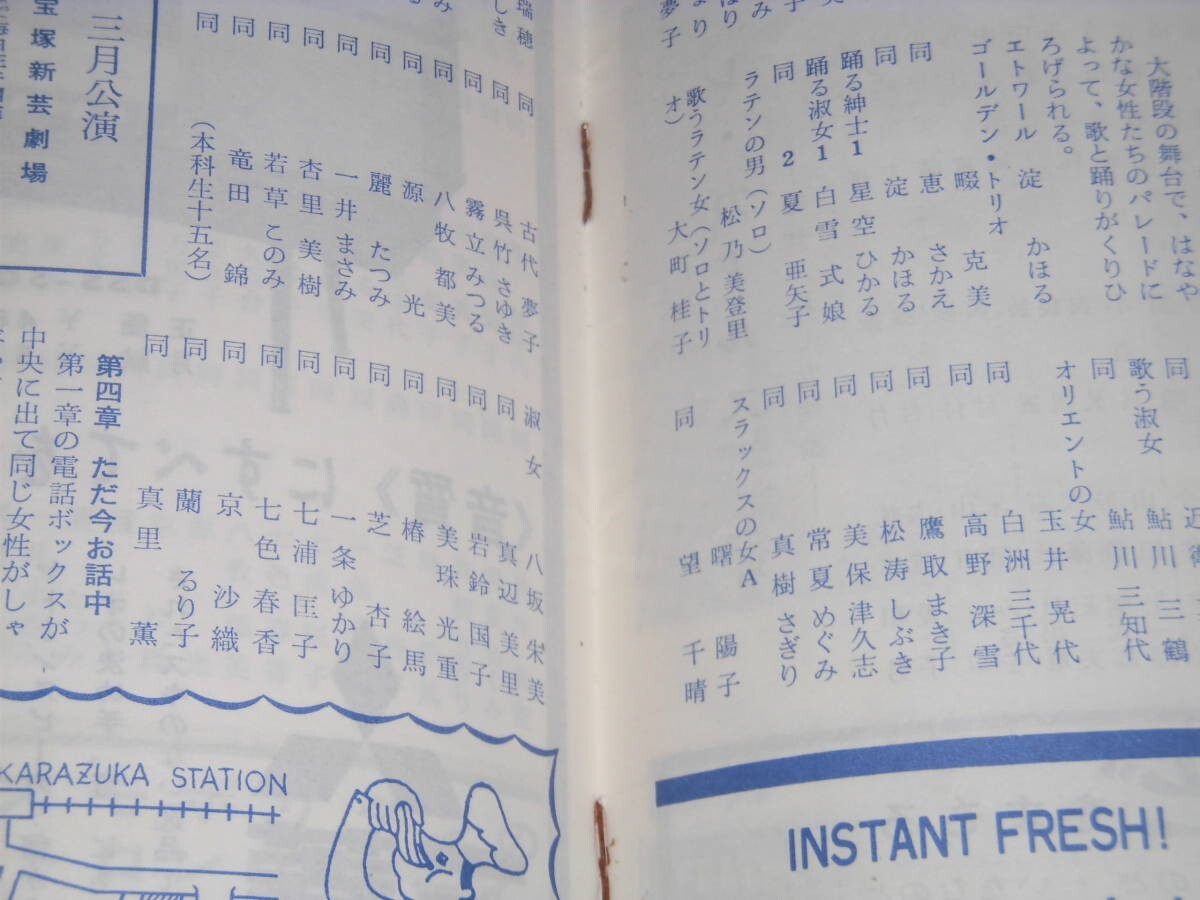 大階段の舞台で、はなや
かな女性たちのパレードに
よって、歌と踊りがくりひ
ろげられる。
エトワール 淀 かほる
ゴールデン・トリオ
畷 克美
同 恵 さかえ
同 淀 かほる
踊る紳士1 星空 ひかる
踊る淑女1 白雪 式娘
同 2 夏 亜矢子
ラテンの男(ソロ)
松乃 美登里
歌うラテン女(ソロとトリ
オ) 大町 桂子
夢子
同
歌う淑女 鮎川 三鶴
同 鮎川 三知代
オリエントの女
玉井 晃代
同 白洲 三千代
同 高野 深雪
同 鷹取 まき子
同 松涛 しぶき
同 美保 津久志
同 常夏 めぐみ
同 真樹 さぎり
スラックスの女A
曙 陽子
同 望 千晴
INSTANT FRESH!
瑞穂
しき
同 古代 夢子
同 呉竹 さゆき
同 霧立 みつる
同 八牧 都美
同 源 光
同 麗 たつみ
同 一井 まさみ
同 杏里 美樹
同 若草 このみ
同 竜田 錦
(本科生十五名)
三月公演
宝塚新芸劇場
淑女 八坂 栄美
同 真辺 美里
同 岩鈴 国子
同 美珠 光重
同 椿 絵馬
同 芝 杏子
同 一条 ゆかり
同 七浦 匡子
同 七色 春香
同 京 沙織
同 蘭 るり子
同 真里 薫
第四章 ただ今お話中
第一章の電話ボックスが
中央に出て同じ女性がしゃ
KARAZUKA STATION